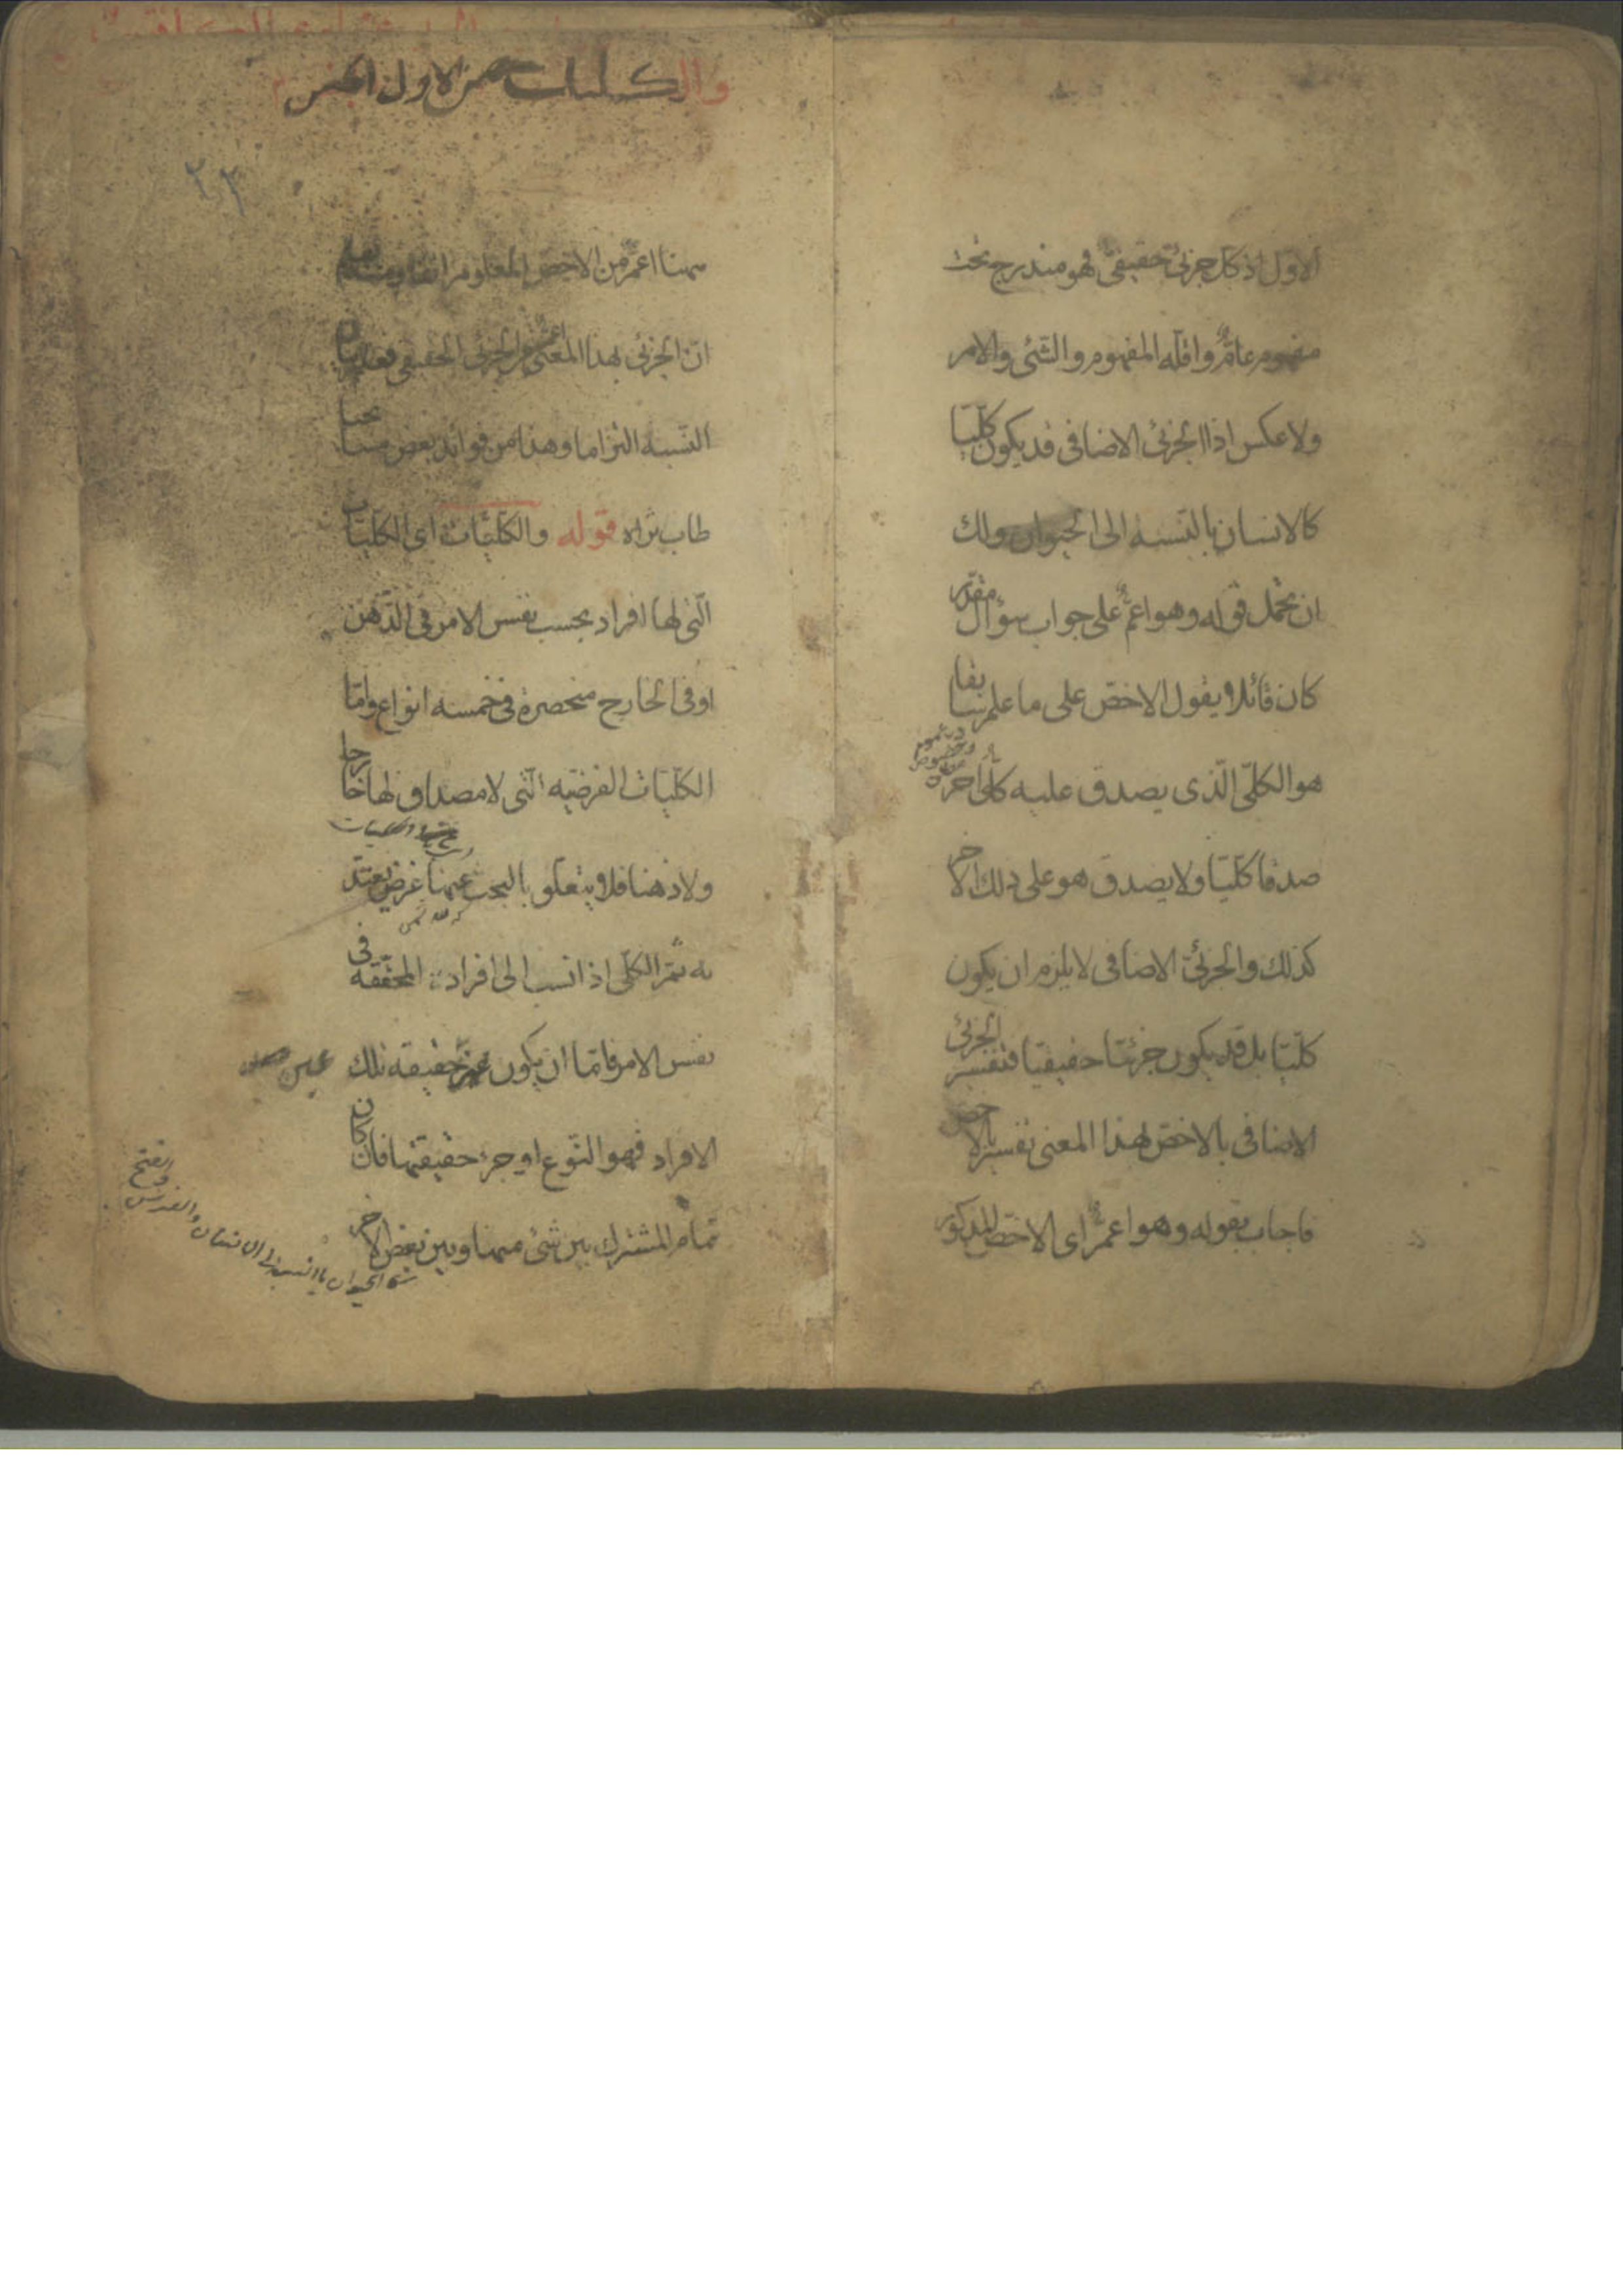 الاول اذ كل جزئي حقيقي فهو مندرج تحت
مفهوم عام واقله المفهوم والشئ والامر
ولا عكس اذا الجزئى الاضافى قد يكون كليّا
كالانسان بالنسبه الى الحيوان ولك
ان تحمل قوله وهو اعم على جواب سؤال مقدّر
كان قائلا يقول الاخصّ على ما علم سابقا
هو الكلىّ الّذى يصدق عليه كلىّ اخر
صدقا كليّا ولا يصدق هو على ذلك الاخر
كذلك والجزئى الاضافى لا يلزم ان يكون
كليّا بل قد يكون جزئيّا حقيقيّا فتفسير الجزئى
الاضافى بالاخصّ بهذا المعنى تفسير بالاخصّ
فاجاب بقوله وهو اعم اى الاخصّ المذكور
والكليات خمس الاول الجنس
٢٣
ههنا اعمّ من الاخصّ المعلوم انفا ومنه يعلم
انّ الجزئى بهذا المعنى اعم من الجزئى الحقيقى فعلم بيان
النّسبه التزاما وهذا من فوائد بعض مشايخنا
طاب ثراه قوله والكليّات اى الكليّات
الّتى لها افراد بحسب نفس الامر فى الذّهن
او فى الخارج منحصرة فى خمسه انواع وامّا
الكليّات الفرضيّه الّتى لا مصداق لها خارجا
ولا ذهنا فلا يتعلّق بالبحث عنها غرض يعتدّ
به ثمّ الكلّى اذا نسب الى افراده المحقّقه فى
نفس الامر فامّا ان يكون عين حقيقه تلك
عين
الافراد فهو النّوع او جزء حقيقتها فان كان
تمام المشترك بين شئ منها وبين بعض الاخر
الحيوان بالنسبة الى الانسان والفرس